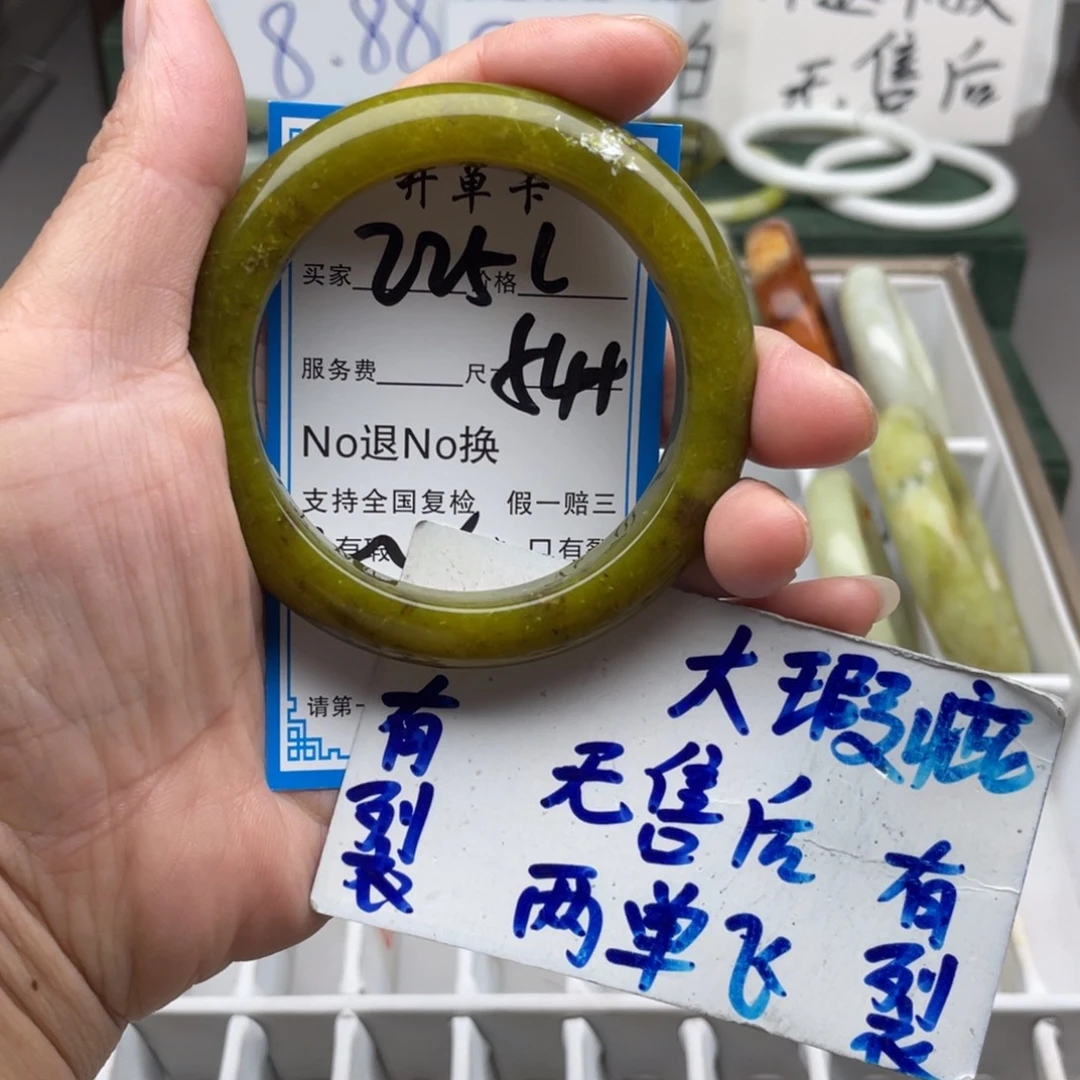 8.88
无售后
开单卡
买家 225 价格 L
服务费 尺 54H
No退No换
支持全国复检 假一赔三
有瑕 口有裂
请第一
大瑕疵
无售后
两单飞
有裂
有裂